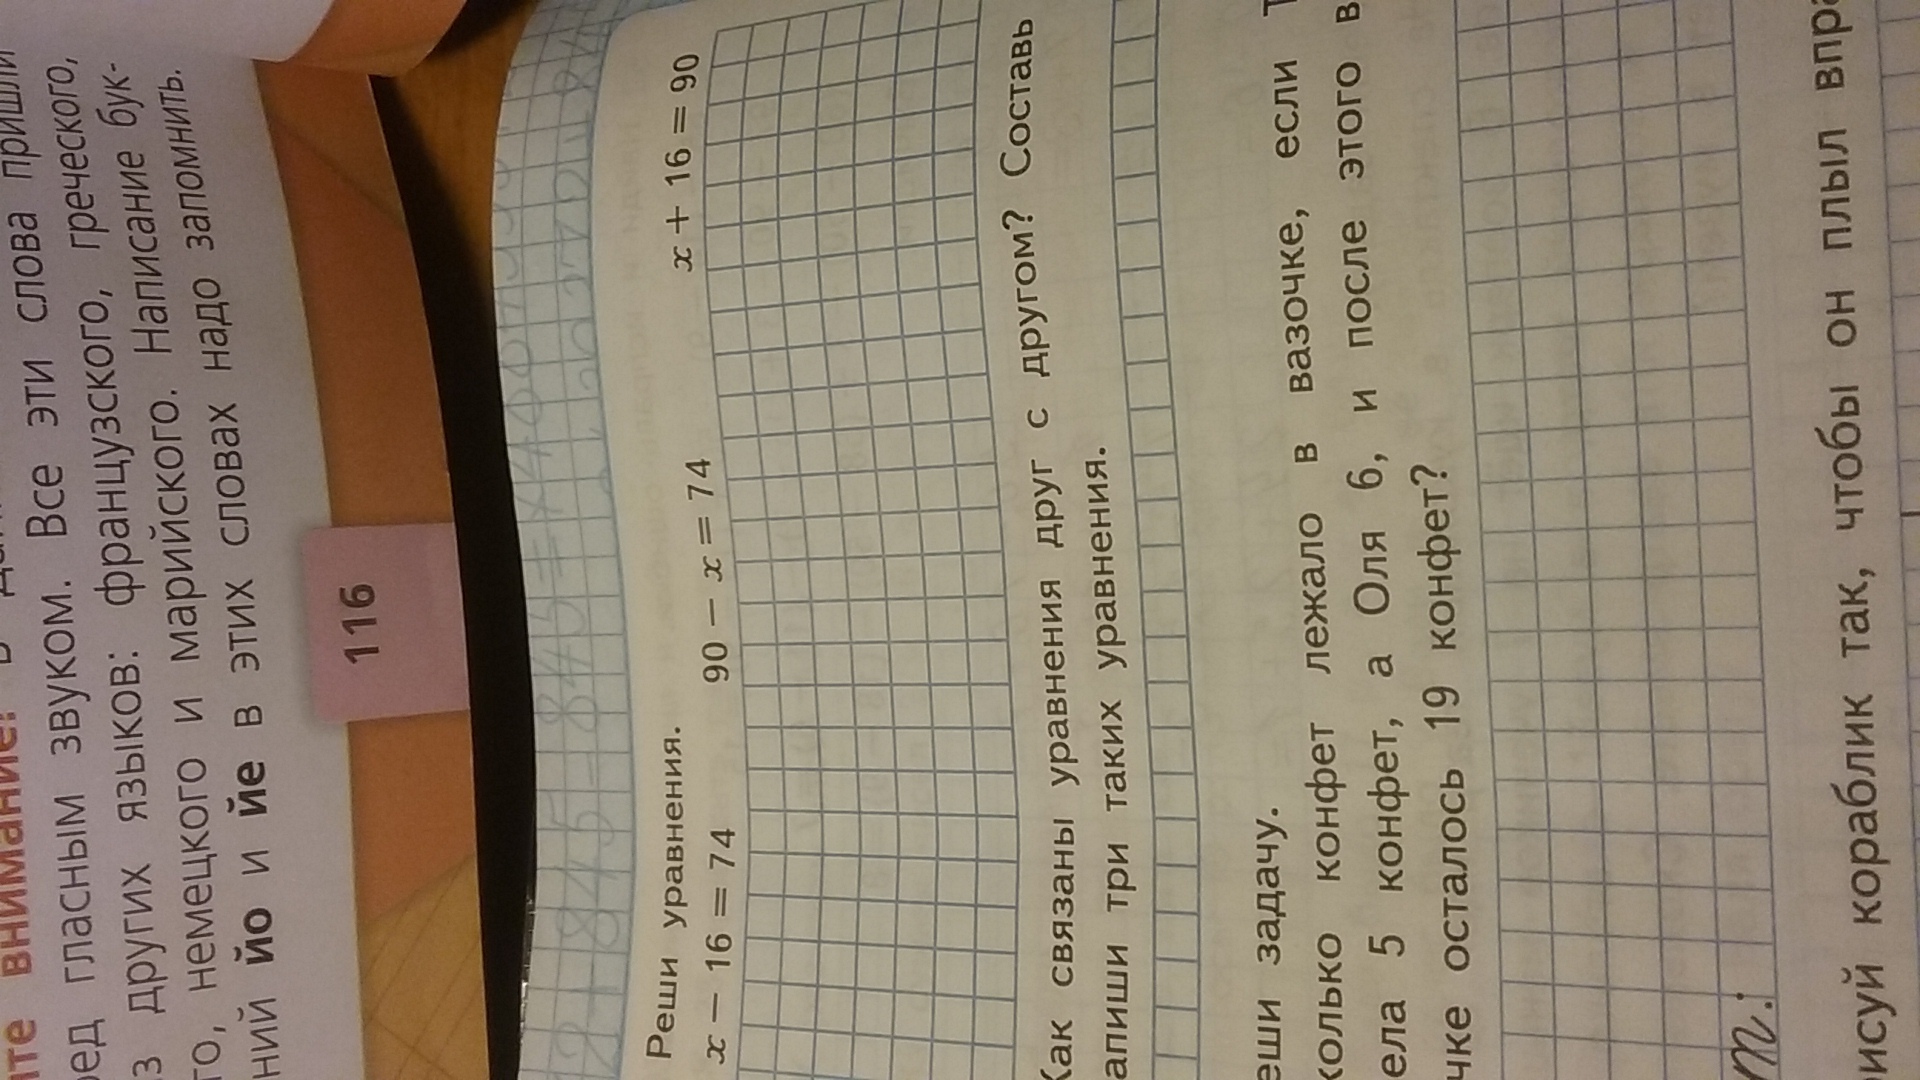 вниманией
гласным звуком. Все эти слова пришли
з других языков: французского, греческого,
немецкого и марийского. Написание бук-
ний йо и йе в этих словах надо запомнить.
116
Реши уравнения.
x − 16 = 74 90 − x = 74 x + 16 = 90
Как связаны уравнения друг с другом? Составь
апиши три таких уравнения.
еши задачу.
колько конфет лежало в вазочке, если Т
ела 5 конфет, а Оля 6, и после этого в
чке осталось 19 конфет?
исуй кораблик так, чтобы он плыл впра